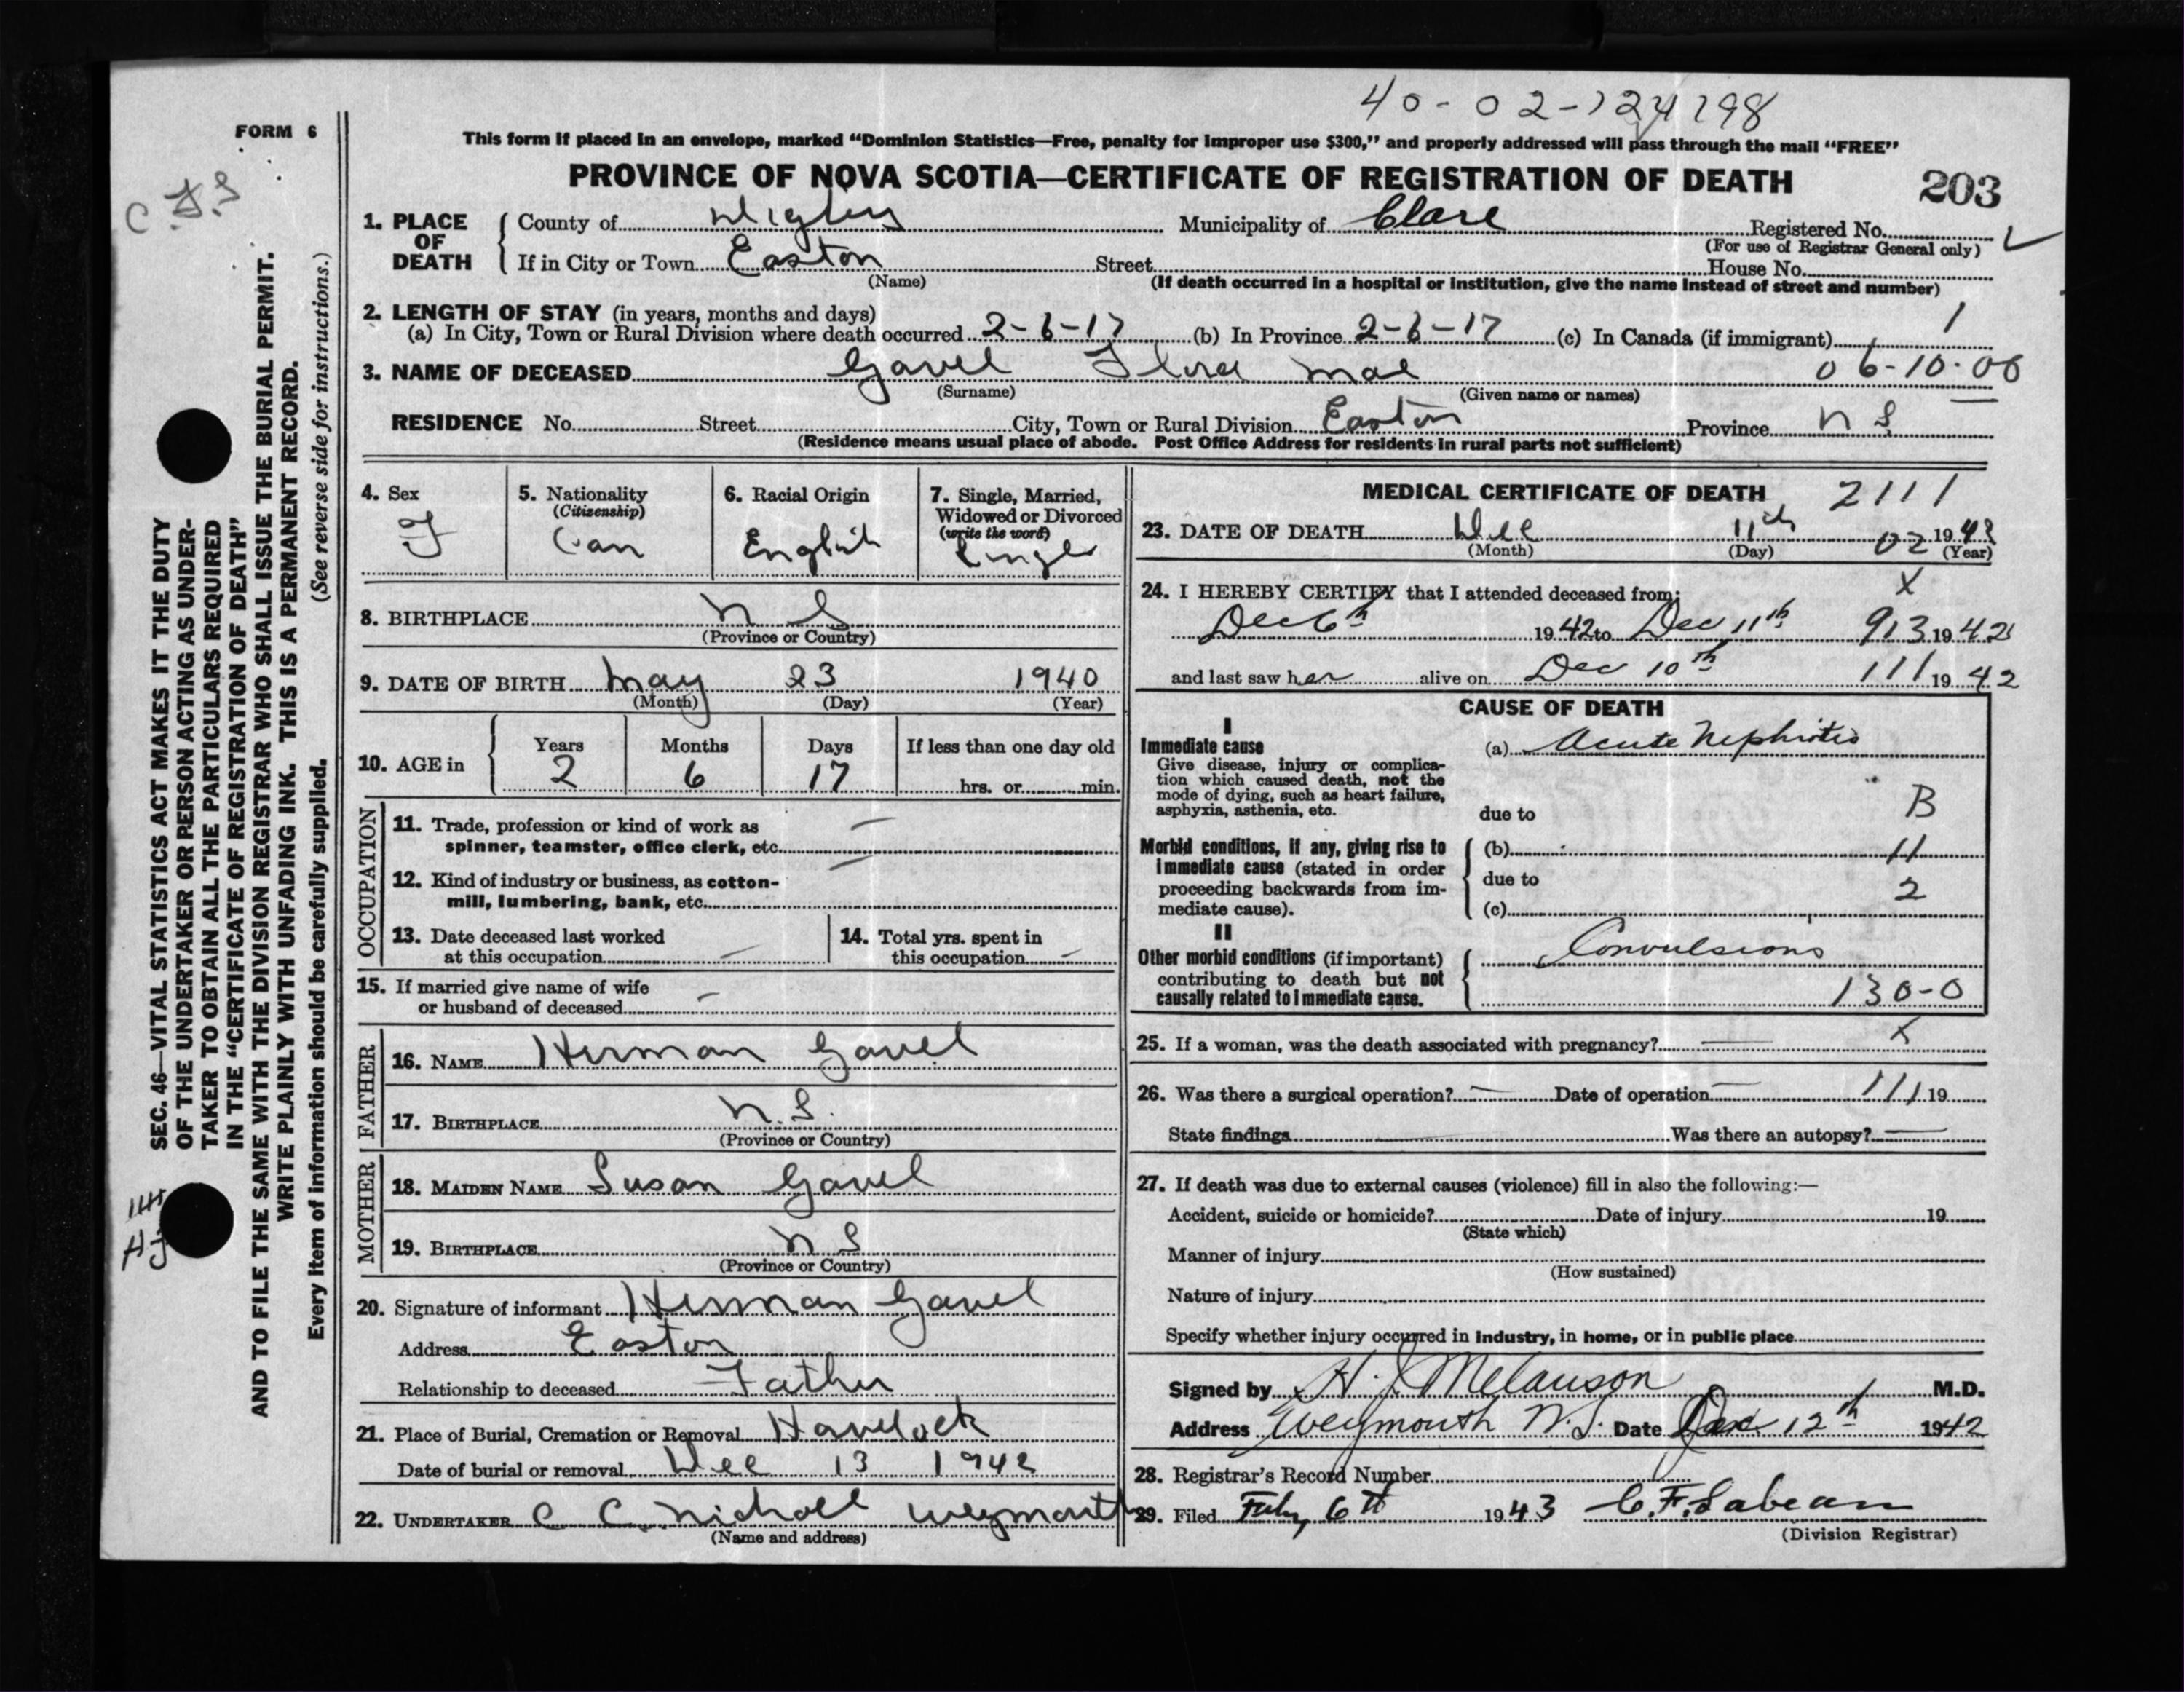 40-02-124198
FORM 6
This form if placed in an envelope, marked “Dominion Statistics—Free, penalty for improper use $300,” and properly addressed will pass through the mail “FREE”
PROVINCE OF NOVA SCOTIA—CERTIFICATE OF REGISTRATION OF DEATH 203
1. PLACE OF DEATH { County of Digby Municipality of Clare Registered No.
(For use of Registrar General only)
If in City or Town Easton Street House No.
(Name) (If death occurred in a hospital or institution, give the name instead of street and number)
2. LENGTH OF STAY (in years, months and days) 1
(a) In City, Town or Rural Division where death occurred 2-6-17 (b) In Province 2-6-17 (c) In Canada (if immigrant)
3. NAME OF DECEASED Gavel Flora Mae 06-10-06
(Surname) (Given name or names)
RESIDENCE No. Street City, Town or Rural Division Easton Province N S
(Residence means usual place of abode. Post Office Address for residents in rural parts not sufficient)
4. Sex F
5. Nationality (Citizenship) Can
6. Racial Origin English
7. Single, Married, Widowed or Divorced (write the word) Single
8. BIRTHPLACE N S
(Province or Country)
9. DATE OF BIRTH May 23 1940
(Month) (Day) (Year)
10. AGE in { Years 2 Months 6 Days 17 If less than one day old
hrs. or min.
OCCUPATION
11. Trade, profession or kind of work as —
spinner, teamster, office clerk, etc.
12. Kind of industry or business, as cotton- —
mill, lumbering, bank, etc.
13. Date deceased last worked
at this occupation —
14. Total yrs. spent in
this occupation —
15. If married give name of wife
or husband of deceased —
FATHER
16. NAME Herman Gavel
17. BIRTHPLACE N.S.
(Province or Country)
MOTHER
18. MAIDEN NAME Susan Gavel
19. BIRTHPLACE N S
(Province or Country)
20. Signature of informant Herman Gavel
Address Easton
Relationship to deceased Father
21. Place of Burial, Cremation or Removal Havelock
Date of burial or removal Dec 13 1942
22. UNDERTAKER C C Nicholl Weymouth
(Name and address)
MEDICAL CERTIFICATE OF DEATH 2111
23. DATE OF DEATH Dec 11th 02 1942
(Month) (Day) (Year)
24. I HEREBY CERTIFY that I attended deceased from: X
Dec 6th 1942 to Dec 11th 913 1942
and last saw her alive on Dec 10th 111 1942
CAUSE OF DEATH
I
Immediate cause (a) Acute Nephritis
Give disease, injury or complica-
tion which caused death, not the
mode of dying, such as heart failure, B
asphyxia, asthenia, etc. due to
Morbid conditions, if any, giving rise to (b) 11
immediate cause (stated in order due to
proceeding backwards from im- 2
mediate cause). (c)
II
Other morbid conditions (if important) Convulsions
contributing to death but not
causally related to immediate cause. 130-0
25. If a woman, was the death associated with pregnancy? — X
26. Was there a surgical operation? — Date of operation — 111 19
State findings Was there an autopsy? —
27. If death was due to external causes (violence) fill in also the following:—
Accident, suicide or homicide? Date of injury 19
(State which)
Manner of injury
(How sustained)
Nature of injury
Specify whether injury occurred in industry, in home, or in public place
Signed by H. J. Melanson M.D.
Address Weymouth N.S. Date Dec 12th 1942
28. Registrar's Record Number
29. Filed Feby 6th 1943 C. F. Sabean
(Division Registrar)
SEC. 46—VITAL STATISTICS ACT MAKES IT THE DUTY
OF THE UNDERTAKER OR PERSON ACTING AS UNDER-
TAKER TO OBTAIN ALL THE PARTICULARS REQUIRED
IN THE “CERTIFICATE OF REGISTRATION OF DEATH”
AND TO FILE THE SAME WITH THE DIVISION REGISTRAR WHO SHALL ISSUE THE BURIAL PERMIT.
WRITE PLAINLY WITH UNFADING INK. THIS IS A PERMANENT RECORD.
Every item of information should be carefully supplied. (See reverse side for instructions.)